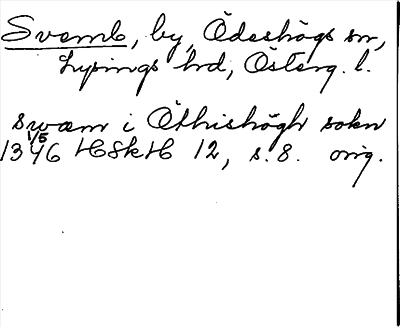 Svemb, by, Ödeshögs sn,
Lysings hrd, Österg. l.
swæm i Øthishøgh sokn
1346 1/5 HSkH 12, s. 8. orig.